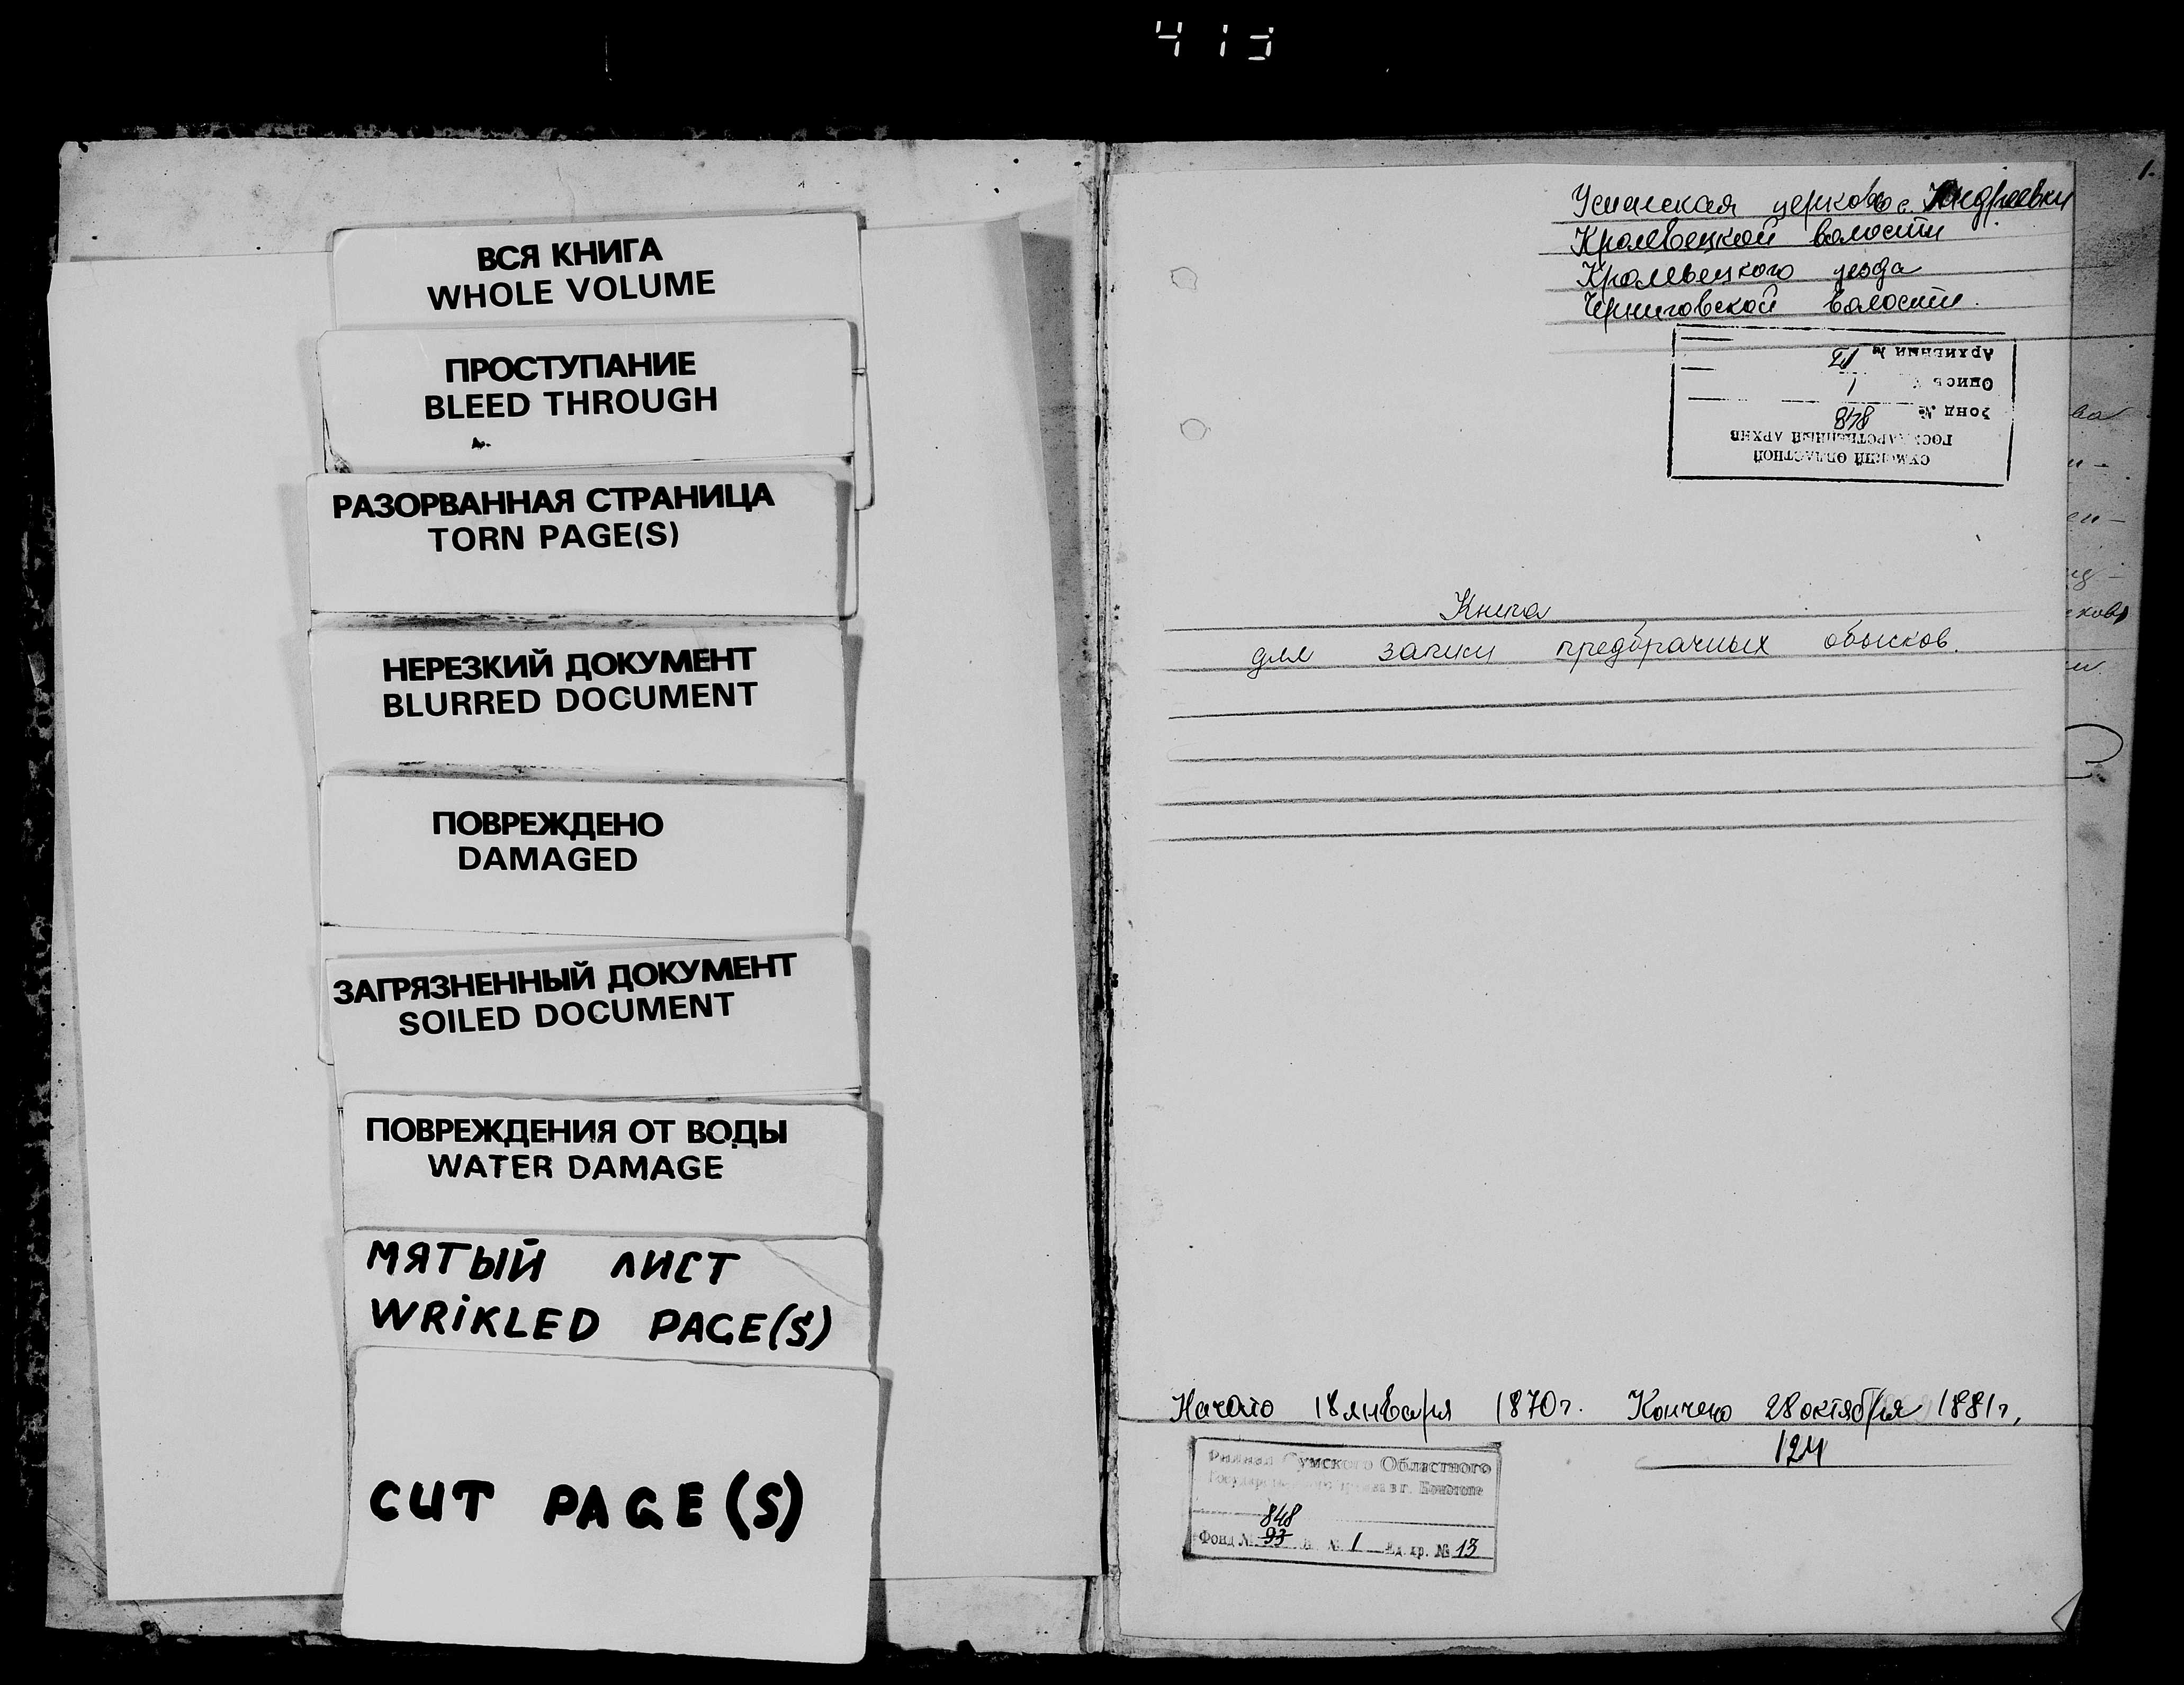 ВСЯ КНИГА
WHOLE VOLUME
ПРОСТУПАНИЕ
BLEED THROUGH
РАЗОРВАННАЯ СТРАНИЦА
TORN PAGE(S)
НЕРЕЗКИЙ ДОКУМЕНТ
BLURRED DOCUMENT
ПОВРЕЖДЕНО
DAMAGED
ЗАГРЯЗНЕННЫЙ ДОКУМЕНТ
SOILED DOCUMENT
ПОВРЕЖДЕНИЯ ОТ ВОДЫ
WATER DAMAGE
МЯТЫЙ ЛИСТ
WRIKLED PAGE(S)
CUT PAGE(S)
1.
Успенская церковь с. Андреевки
Кролевецкой волости
Кролевецкого уезда
Черниговской волости.
СУМСКИЙ ОБЛАСТНОЙ
ГОСУДАРСТВЕННЫЙ АРХИВ
Фонд № 848
Опись 1
Архивный №
Книга
для записи предбрачных обысков.
Начато 18 января 1870г. Кончено 28 октября 1881г.
124
Филиал Сумского Областного
Государственного архива в г. Конотопе
848
Фонд № 93 № 1 Ед. хр. № 13